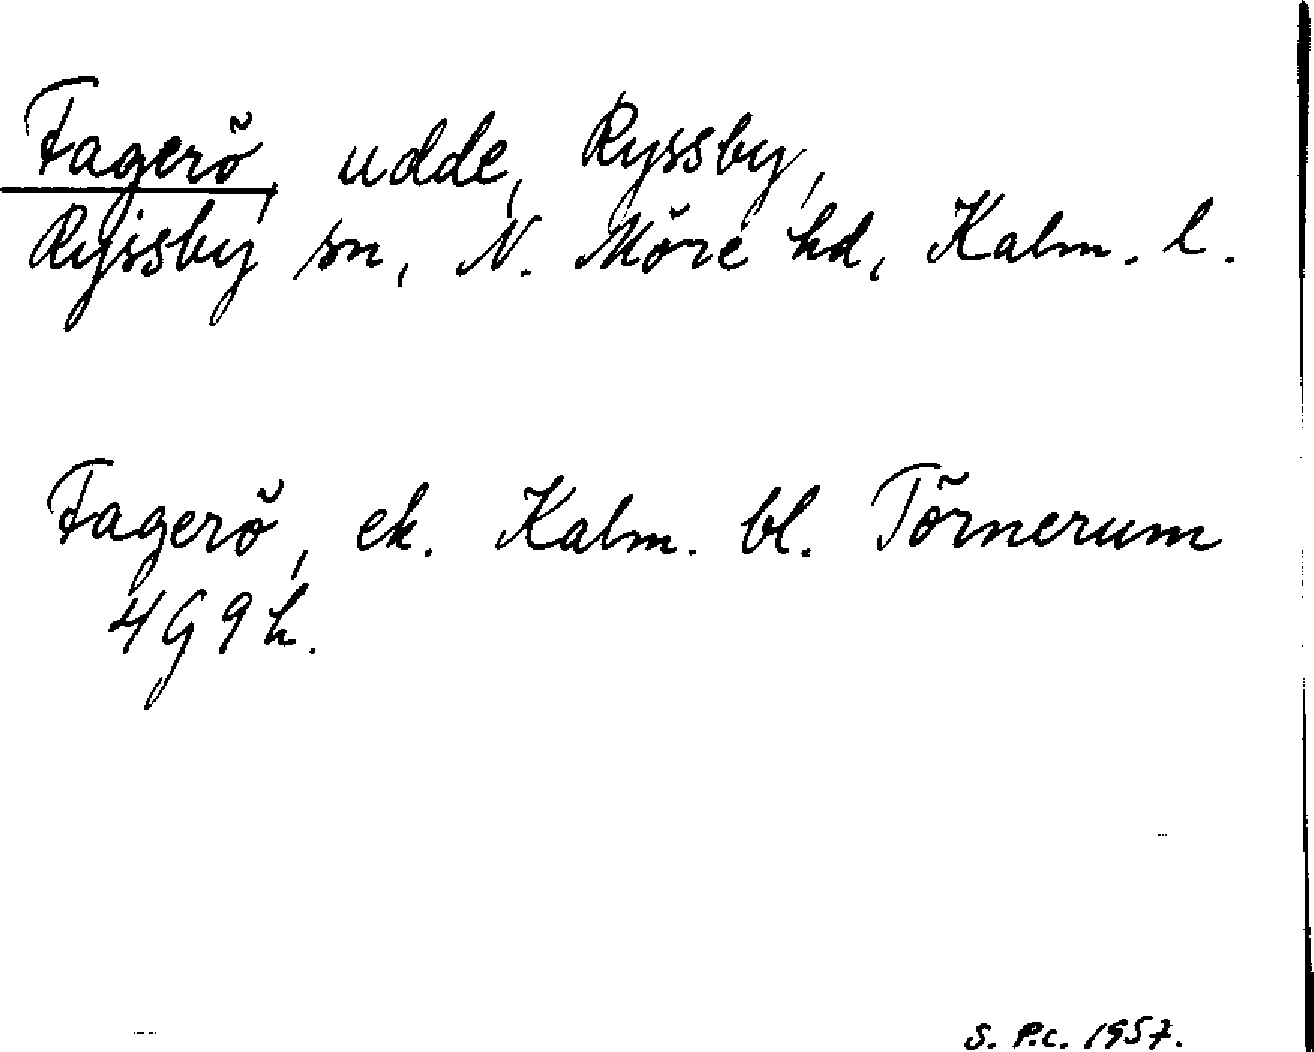 Fagerö, udde, Ryssby,
Ryssby sn, N. Möre hd, Kalm. l.
Fagerö, ek. Kalm. bl. Törnerum
4G9h.
S. P.c. 1957.